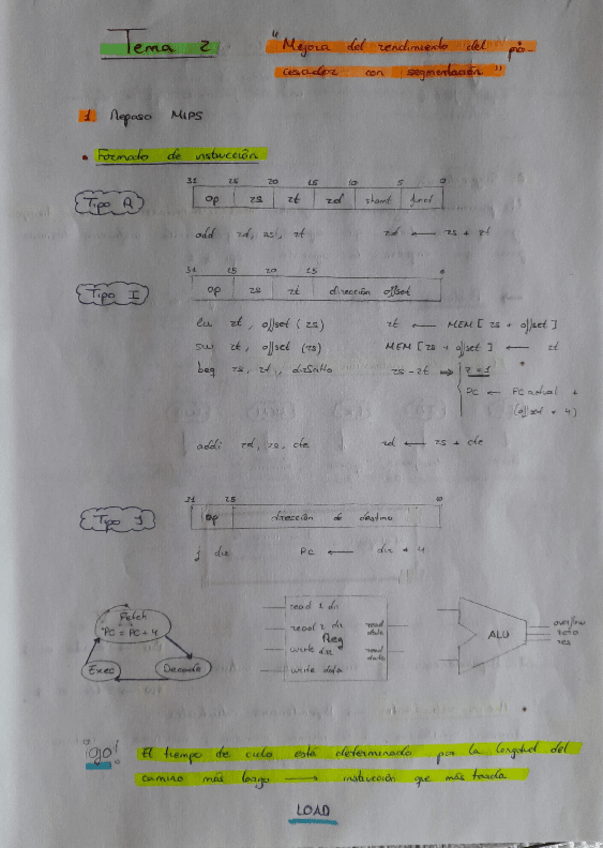 Tema 2
"Mejora del rendimiento del pro-
cesador con segmentación"
1 Repaso MIPS
• Formato de instrucción
Tipo R
31 25 20 15 10 5 0
op rs rt rd shamt funct
add rd, rs, rt rd ← rs + rt
Tipo I
31 25 20 15 0
op rs rt dirección offset
lw rt, offset (rs) rt ← MEM [rs + offset]
sw rt, offset (rs) MEM [rs + offset] ← rt
beq rs, rt, dirSalto rs - rt ⇒ z = 1
PC ← PC actual +
(offset * 4)
addi rd, rs, cte rd ← rs + cte
Tipo J
31 25 0
op dirección de destino
j dir PC ← dir * 4
Fetch
PC = PC + 4
Exec
Decode
read 1 dir
read 2 dir
Reg
write dir
write data
read data
read data
ALU
overflow
zero
res
¡ojo! El tiempo de ciclo está determinado por la longitud del
camino más largo → instrucción que más tarda
LOAD